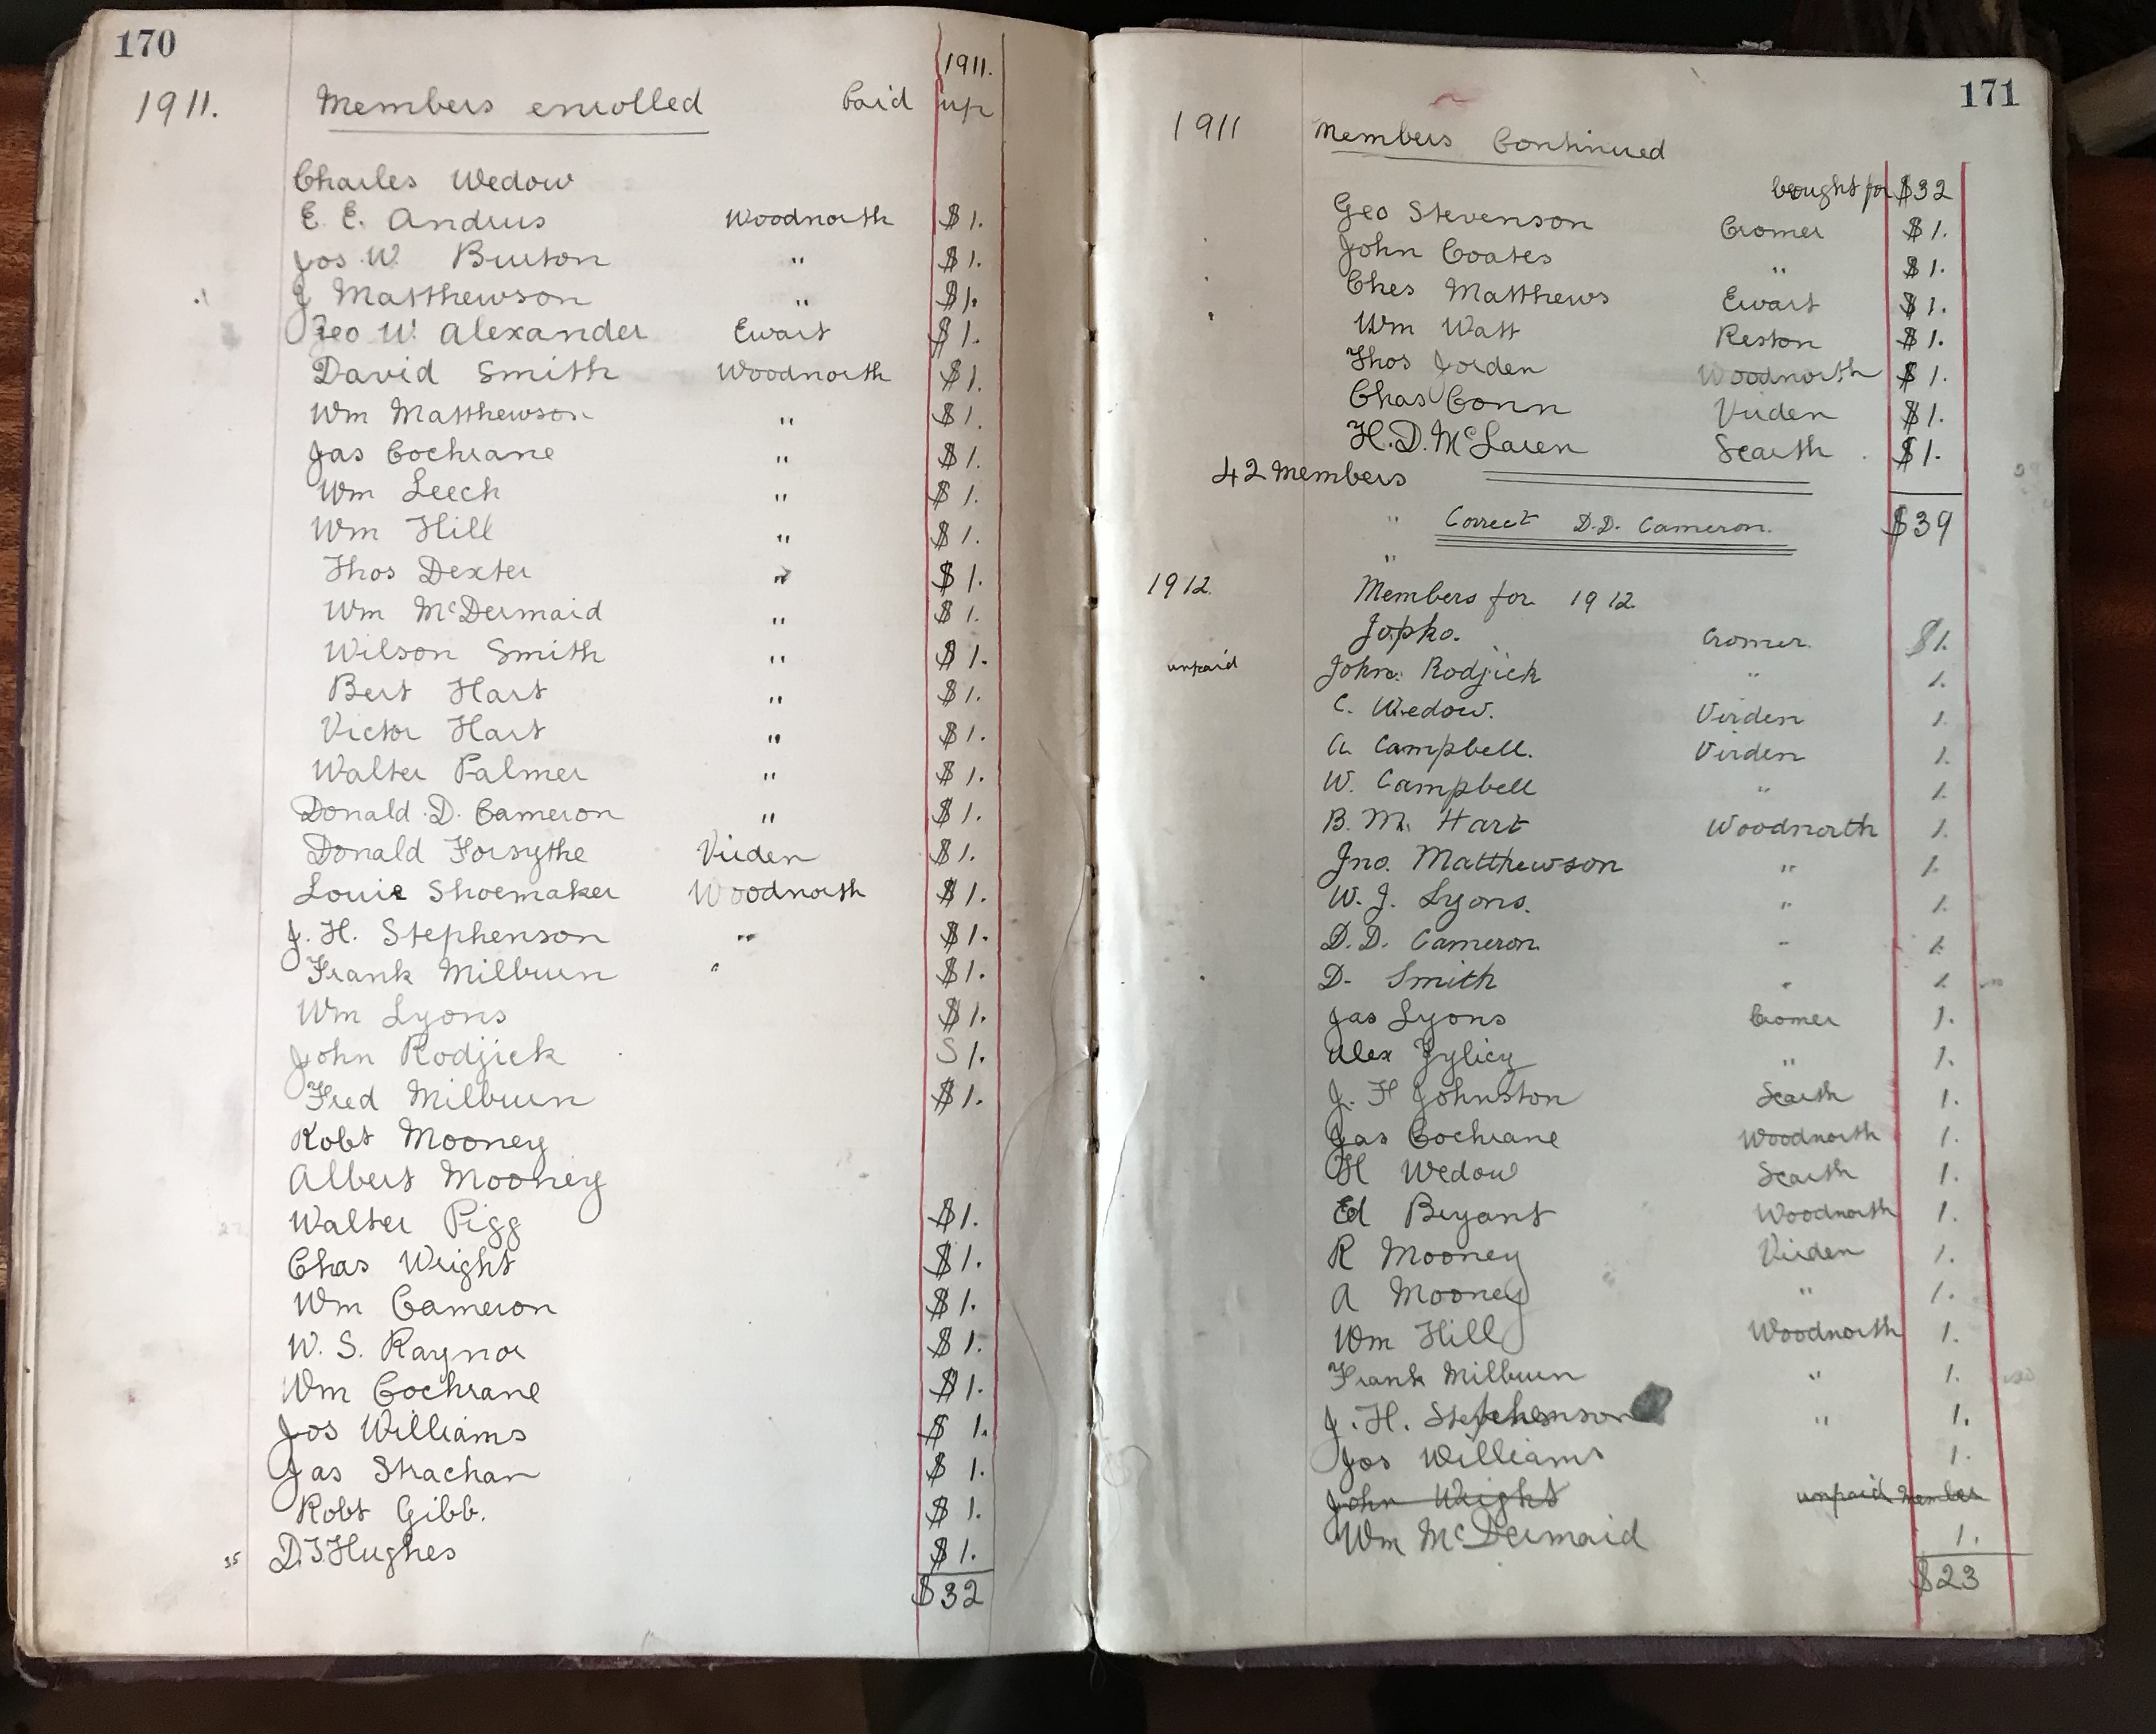 170
1911.
1911. Members enrolled Paid up
Charles Wedow
E. E. Andrus Woodnorth $1.
Jos W. Burton " $1.
J Matthewson " $1.
Geo W. Alexander Ewart $1.
David Smith Woodnorth $1.
Wm Matthewson " $1.
Jas Cochrane " $1.
Wm Leech " $1.
Wm Hill " $1.
Thos Dexter " $1.
Wm McDermaid " $1.
Wilson Smith " $1.
Bert Hart " $1.
Victor Hart " $1.
Walter Palmer " $1.
Donald D. Cameron " $1.
Donald Forsythe Virden $1.
Louie Shoemaker Woodnorth $1.
J. H. Stephenson " $1.
Frank Milburn " $1.
Wm Lyons $1.
John Rodjick $1.
Fred Milburn $1.
Robt Mooney
Albert Mooney
Walter Pigg $1.
Chas Wright $1.
Wm Cameron $1.
W. S. Raynor $1.
Wm Cochrane $1.
Jos Williams $1.
Jas Strachan $1.
Robt Gibb. $1.
35 D.T. Hughes $1.
$32
171
1911 Members Continued
bought for $32
Geo Stevenson Cromer $1.
John Coates " $1.
Ches Matthews Ewart $1.
Wm Watt Reston $1.
Thos Jorden Woodnorth $1.
Chas Conn Virden $1.
H. D. McLaren Scarth $1.
42 members
" Correct D.D. Cameron. $39
"
1912. Members for 1912.
Jopko. Cromer. $1.
unpaid John Rodjick " 1.
C. Wedow. Virden 1.
A. Campbell. Virden 1.
W. Campbell " 1.
B. M. Hart Woodnorth 1.
Jno. Matthewson " 1.
W. J. Lyons. " 1.
D. D. Cameron " 1.
D. Smith " 1.
Jas Lyons Cromer 1.
Alex " 1.
J. H Johnston Scarth 1.
Jas Cochrane Woodnorth 1.
H Wedow Scarth 1.
Ed Bryant Woodnorth 1.
R Mooney Virden 1.
A Mooney " 1.
Wm Hill Woodnorth 1.
Frank Milburn " 1.
J. H. Stephenson " 1.
Jos Williams 1.
John Wright unpaid member
Wm McDermaid 1.
$23